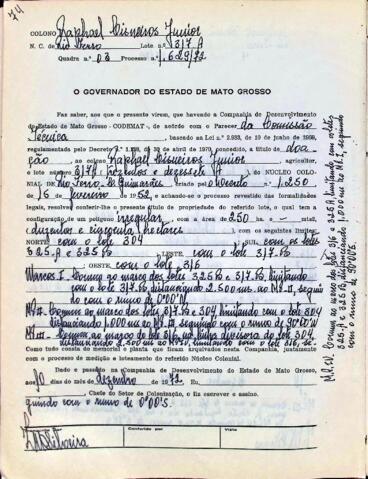 74
COLONO Raphael Cisneiros Junior
N. C. de Rio Ferro Lote n.º 317 A
Quadra n.º 03 Processo n.º 1.629/72
O GOVERNADOR DO ESTADO DE MATO GROSSO
Faz saber, aos que o presente virem, que havendo a Companhia de Desenvolvimento
do Estado de Mato Grosso - CODEMAT -, de acôrdo com o Parecer da Comissão
Técnica, baseado na Lei n.º 2.933, de 10 de junho de 1969,
regulamentada pelo Decreto n.º de abril de 1970, concedido, a título de doa-
ção, ao colono Raphael Cisneiros Junior, agricultor,
o lote número 317 A (trezentos e dezessete A) do NÚCLEO COLO-
NIAL DE Rio Ferro - Guimarães, criado pelo Decreto n.º 1.250
de fevereiro de 1952, e achando-se o processo revestido das formalidades
legais, resolveu conferir-lhe o presente título de propriedade do referido lote, o qual tem a
configuração de um polígono irregular, com a área de 250 ha.
(duzentos e cincoenta hectares), com os seguintes limites:
NORTE com o lote 304 SUL com os lotes
325 A e 325 B LESTE com o lote 317 B
OESTE com o lote 316
Marcos I. Comum ao marco dos lotes 325 B e 317 B, limitando
com o lote 317 B, distanciando 2.500 ms. ao M. II, seguin-
do com o rumo de 0°00'N.
M. II. Comum ao marco dos lotes 317 B e 304, limitando com o lote 304
distanciando 1.000 ms ao M. III, seguindo com o rumo de 90°00'W
M. III. Comum ao marco do lote 316, na linha divisória do lote 304,
distanciando 2.500 ms ao M. IV, limitando com o lote 316, se-
Como tudo consta do memorial e planta que foram arquivados nesta Companhia, juntamente
com os processos de medição e loteamento do referido Núcleo Colonial.
Dado e passado na Companhia de Desenvolvimento do Estado de Mato Grosso,
aos 10 dias do mês de dezembro de 1972 Eu,
Chefe do Setor de Colonização, o fiz escrever e assino.
guindo com o rumo de 0°00'S.
Conferido por
Visto
M. IV. Comum ao marco dos lotes 316 e 325 A, limitando com os lotes
325 A e 325 B, distanciando 1.000 ms ao M. I, seguindo
com o rumo de 90°00'E.